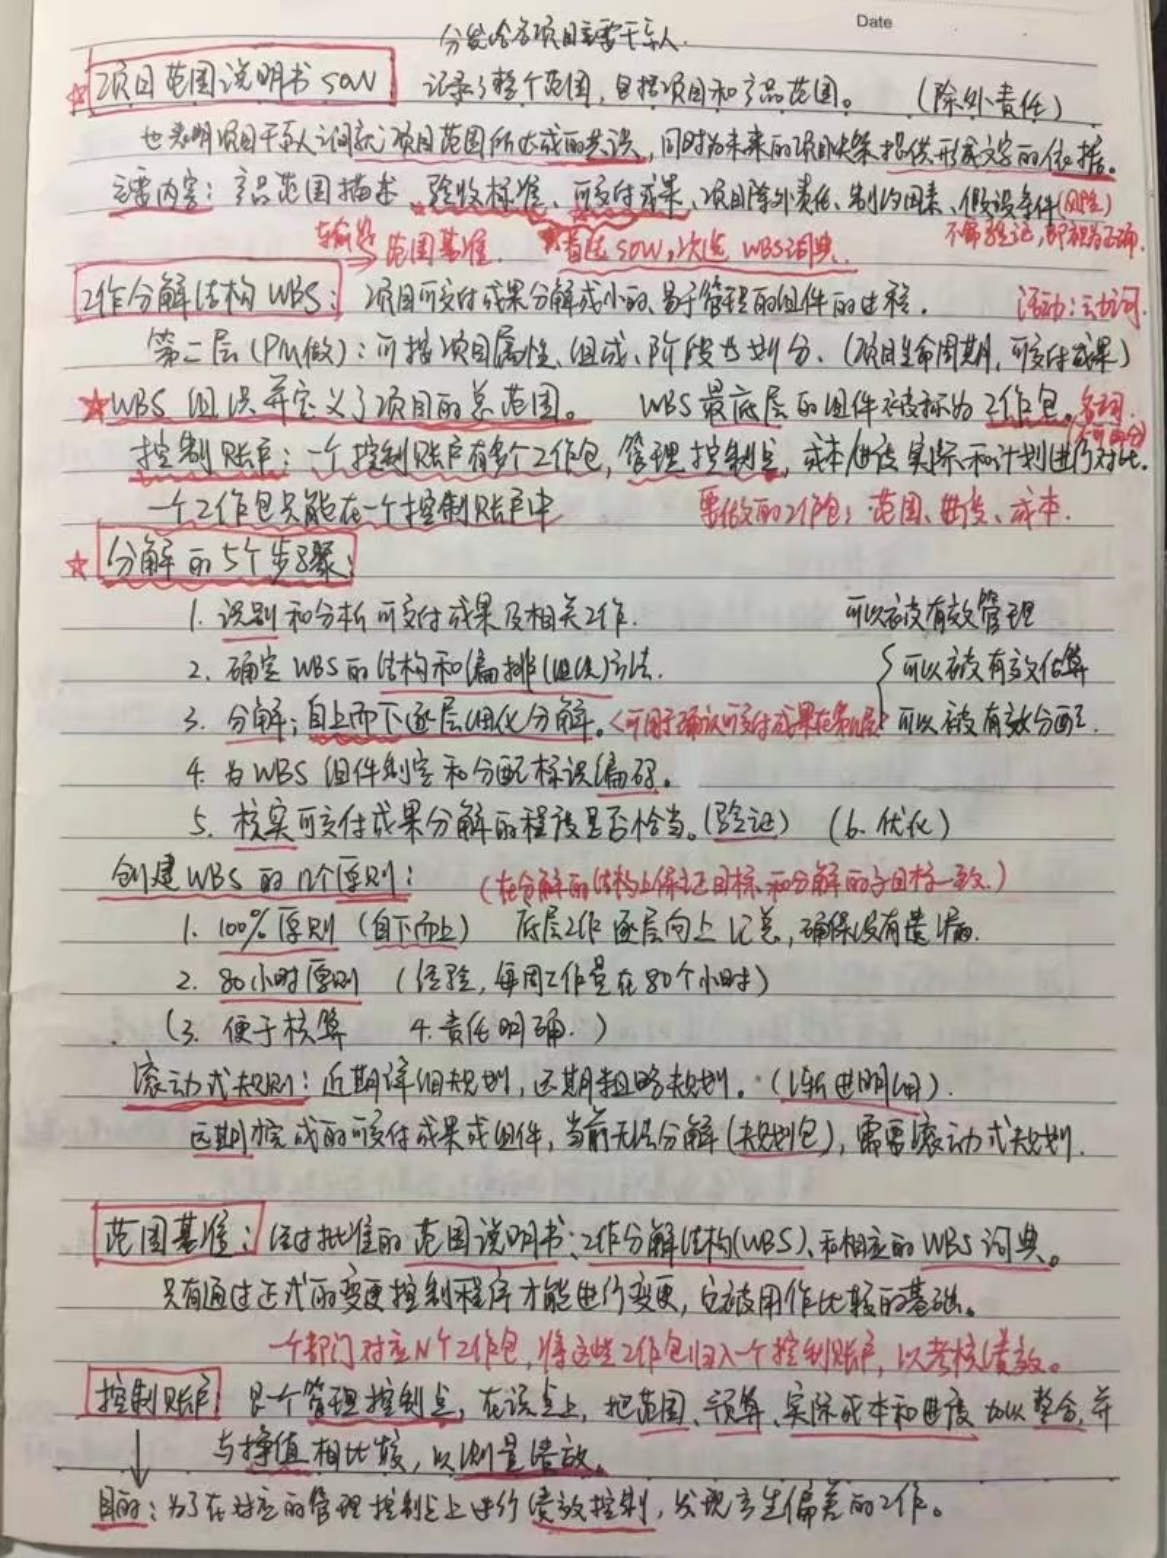 Date
分发给各项目主要干系人.
☆ 项目范围说明书 SOW 记录了整个范围,包括项目和产品范围。(除外责任)
也表明项目干系人之间就项目范围所达成的共识,同时为未来的项目决策提供形成文字的依据。
主要内容:产品范围描述、验收标准、可交付成果、项目除外责任、制约因素、假设条件(风险)
范围基准. 首选 SOW,次选 WBS词典. 不需验证,即视为正确.
工作分解结构 WBS: 项目可交付成果分解成小的、易于管理的组件的过程. 活动:动词.
第二层(PM做):可按项目属性、组成、阶段去划分.(项目生命周期,可交付成果)
★WBS 组织并定义了项目的总范围。 WBS最底层的组件被称为工作包。名词.
控制账户:一个控制账户有多个工作包,管理控制点,成本/进度实际和计划进行对比.
一个工作包只能在一个控制账户中 要做的工作包:范围、进度、成本.
☆ 分解的5个步骤:
1. 识别和分析可交付成果及相关工作. 可以被有效管理
2. 确定WBS的结构和编排(组织)方法. 可以被有效估算
3. 分解:自上而下逐层细化分解。<可用于确认可交付成果在第几层> 可以被有效分配.
4. 为WBS组件制定和分配标识编码。
5. 核实可交付成果分解的程度是否恰当。(验证) (6. 优化)
创建WBS的几个原则: (在分解的结构上保证目标和分解的子目标一致.)
1. 100%原则(自下而上) 底层工作逐层向上汇总,确保没有遗漏.
2. 80小时原则 (经验,每周工作量在80个小时)
(3. 便于核算 4. 责任明确.)
滚动式规划:近期详细规划,远期粗略规划。(渐进明细).
远期完成的可交付成果或组件,当前无法分解(规划包),需要滚动式规划.
范围基准: 经过批准的范围说明书、工作分解结构(WBS)、和相应的WBS词典。
只有通过正式的变更控制程序才能进行变更,它被用作比较的基础。
一个部门对应N个工作包,将这些工作包归入一个控制账户,以考核绩效。
控制账户: 是个管理控制点,在该点上,把范围、预算、实际成本和进度加以整合,并
与挣值相比较,以测量绩效。
目的:为了在对应的管理控制点上进行绩效控制,发现产生偏差的工作。